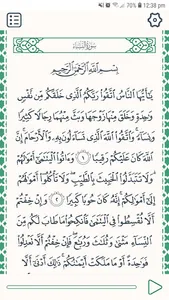 70% 12:38 pm
سورة النساء
بِسْمِ اللَّهِ الرَّحْمَٰنِ الرَّحِيمِ
يَا أَيُّهَا النَّاسُ اتَّقُوا رَبَّكُمُ الَّذِي خَلَقَكُم مِّن نَّفْسٍ
وَاحِدَةٍ وَخَلَقَ مِنْهَا زَوْجَهَا وَبَثَّ مِنْهُمَا رِجَالًا كَثِيرًا
وَنِسَاءً ۚ وَاتَّقُوا اللَّهَ الَّذِي تَسَاءَلُونَ بِهِ وَالْأَرْحَامَ ۚ إِنَّ
اللَّهَ كَانَ عَلَيْكُمْ رَقِيبًا ١ وَآتُوا الْيَتَامَىٰ أَمْوَالَهُمْ
وَلَا تَتَبَدَّلُوا الْخَبِيثَ بِالطَّيِّبِ ۖ وَلَا تَأْكُلُوا أَمْوَالَهُمْ
إِلَىٰ أَمْوَالِكُمْ ۚ إِنَّهُ كَانَ حُوبًا كَبِيرًا ٢ وَإِنْ خِفْتُمْ
أَلَّا تُقْسِطُوا فِي الْيَتَامَىٰ فَانكِحُوا مَا طَابَ لَكُم مِّنَ
النِّسَاءِ مَثْنَىٰ وَثُلَاثَ وَرُبَاعَ ۖ فَإِنْ خِفْتُمْ أَلَّا تَعْدِلُوا
فَوَاحِدَةً أَوْ مَا مَلَكَتْ أَيْمَانُكُمْ ۚ ذَٰلِكَ أَدْنَىٰ أَلَّا